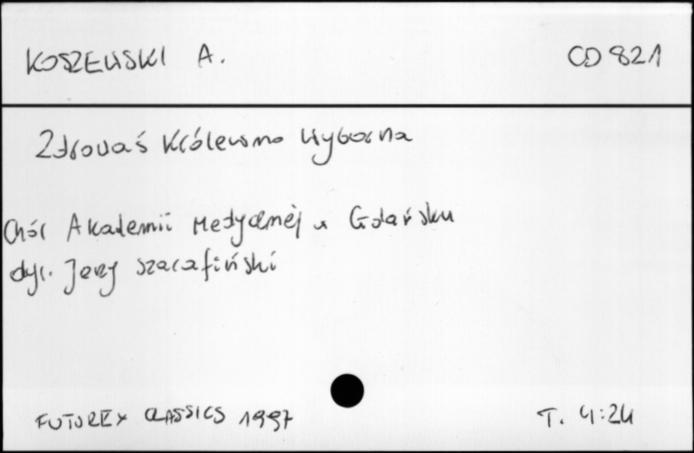 KOSZEWSKI A. CD 821
Zdrowaś Królewno Wyborna
Chór Akademii Medycznej w Gdańsku
dyr. Jerzy Szarafiński
FUTUREX CLASSICS 1997 T. 4:24